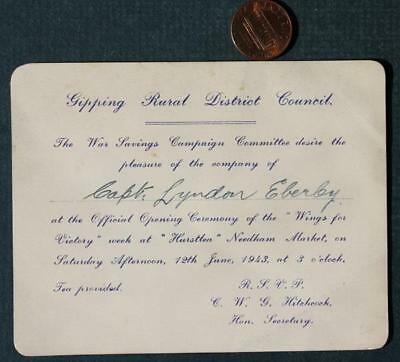 Gipping Rural District Council.
The War Savings Campaign Committee desire the
pleasure of the company of
Capt. Lyndon Eberly
at the Official Opening Ceremony of the "Wings for
Victory" week at "Hurstlea" Needham Market, on
Saturday Afternoon, 12th June, 1943, at 3 o'clock.
Tea provided.
R. S. V. P.
C. W. G. Hitchcock,
Hon. Secretary.